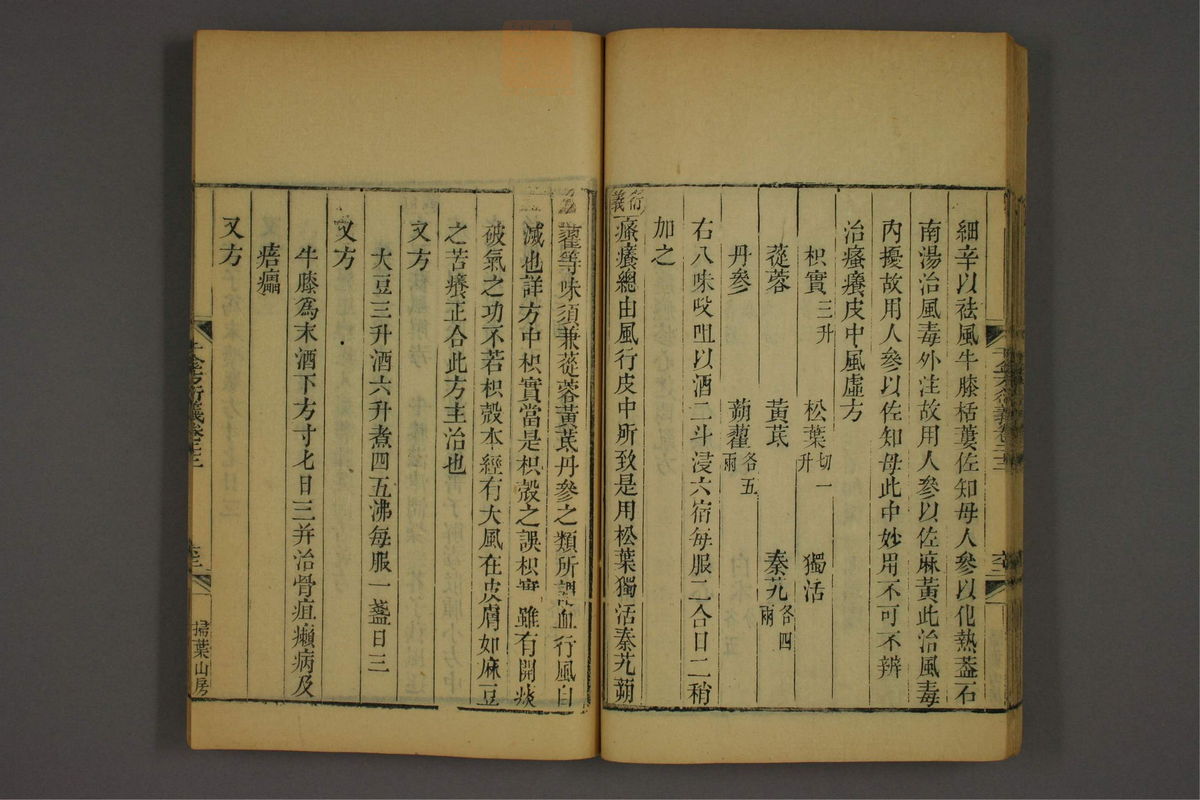 細辛以祛風牛膝栝蔞佐知母人參以化熱葢石
南湯治風毒外注故用人參以佐麻黃此治風毒
內擾故用人參以佐知母此中妙用不可不辨
治瘙癢皮中風虛方
枳實三升　松葉切一升　獨活
蓯蓉　黃芪　秦艽各四兩
丹參　蒴藋各五兩
右八味㕮咀以酒二斗浸六宿每服二合日二稍
加之
衍義瘙癢總由風行皮中所致是用松葉獨活秦艽蒴
藋等味須兼蓯蓉黃芪丹參之類所謂血行風自
滅也詳方中枳實當是枳殼之誤枳實雖有開痰
破氣之功不若枳殼本經有大風在皮膚如麻豆
之苦癢正合此方主治也
又方
大豆三升酒六升煮四五沸每服一盞日三
又方
牛膝爲末酒下方寸匕日三并治骨疽癩病及
㾦㿔
又方
千金方衍義卷二十二
掃葉山房